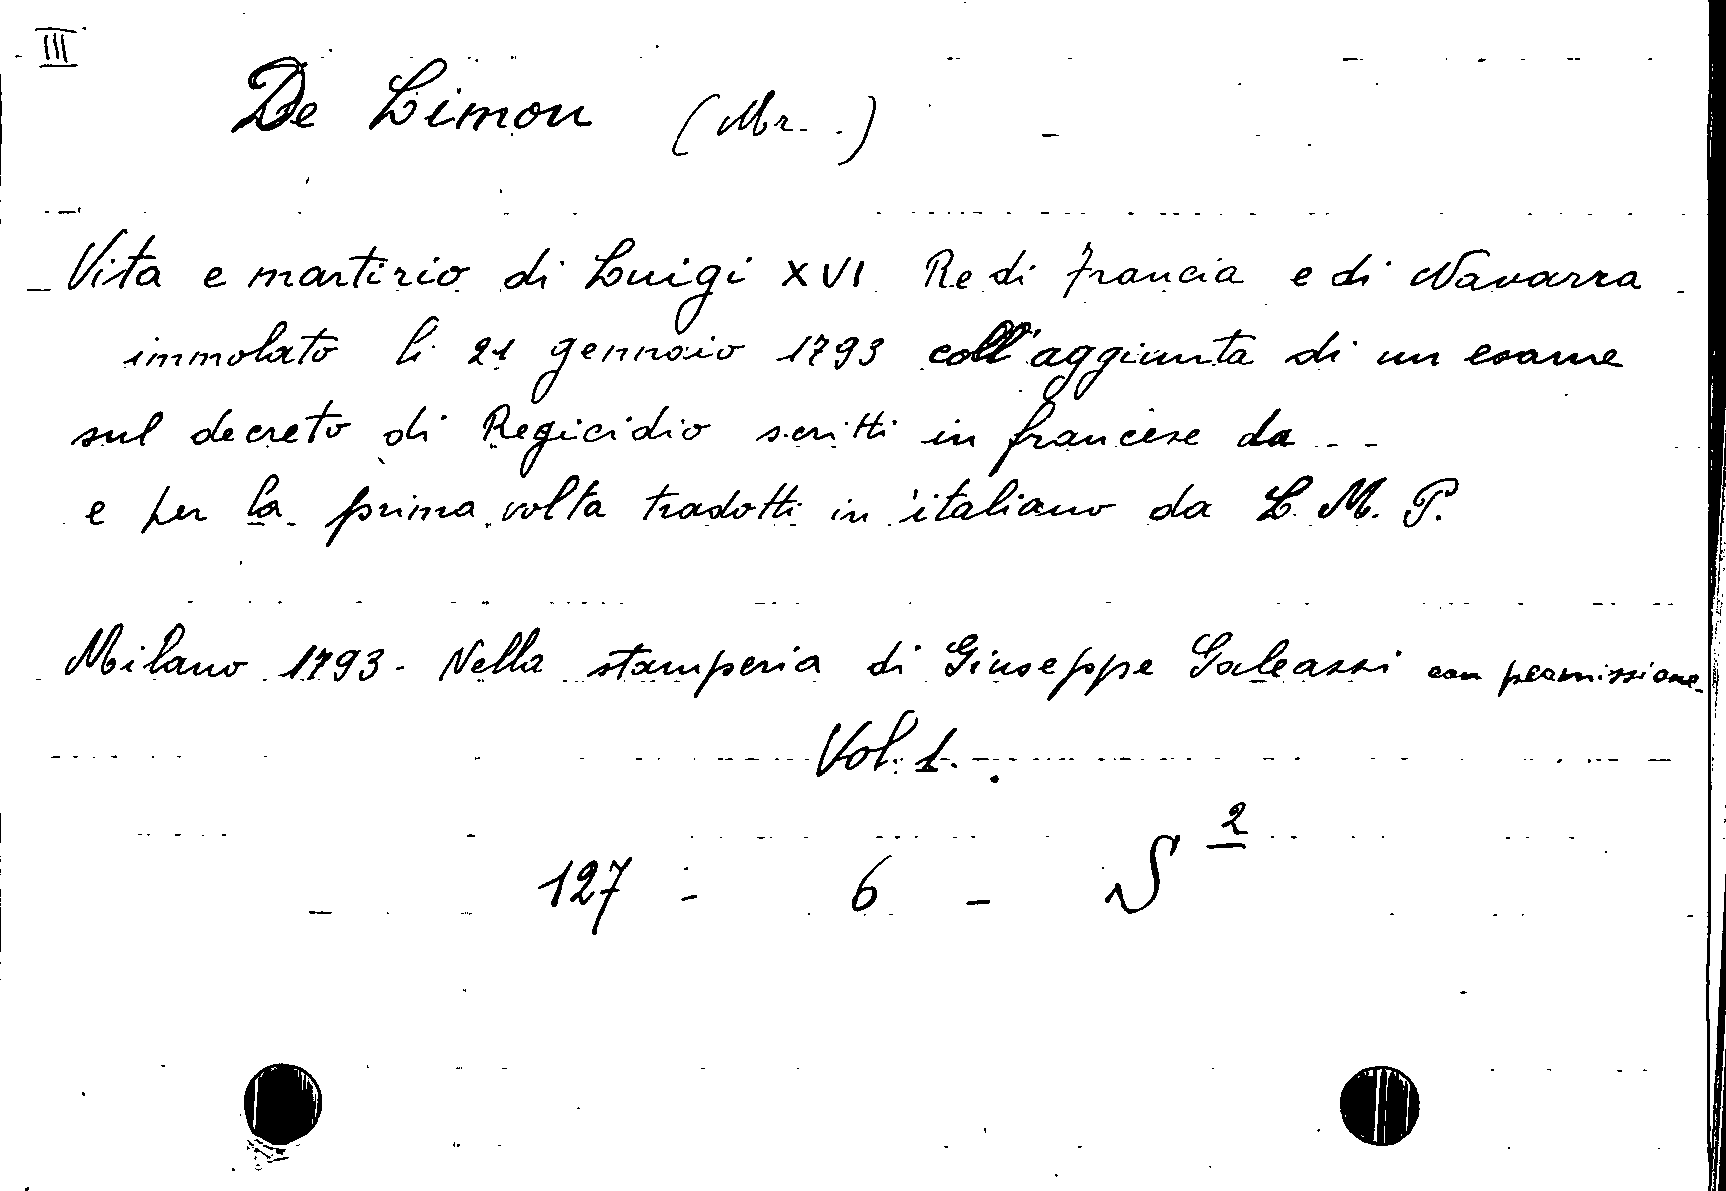 III
De Limon (Mr. .)
Vita e martirio di Luigi XVI Re di Francia e di Navarra
immolato li 21 gennaio 1793 coll'aggiunta di un esame
sul decreto di Regicidio scritti in francese da . . .
e per la prima volta tradotti in italiano da L. M. P.
Milano 1793 - Nella stamperia di Giuseppe Galeazzi con permissione.
Vol. 1.
127 - 6 - S 2